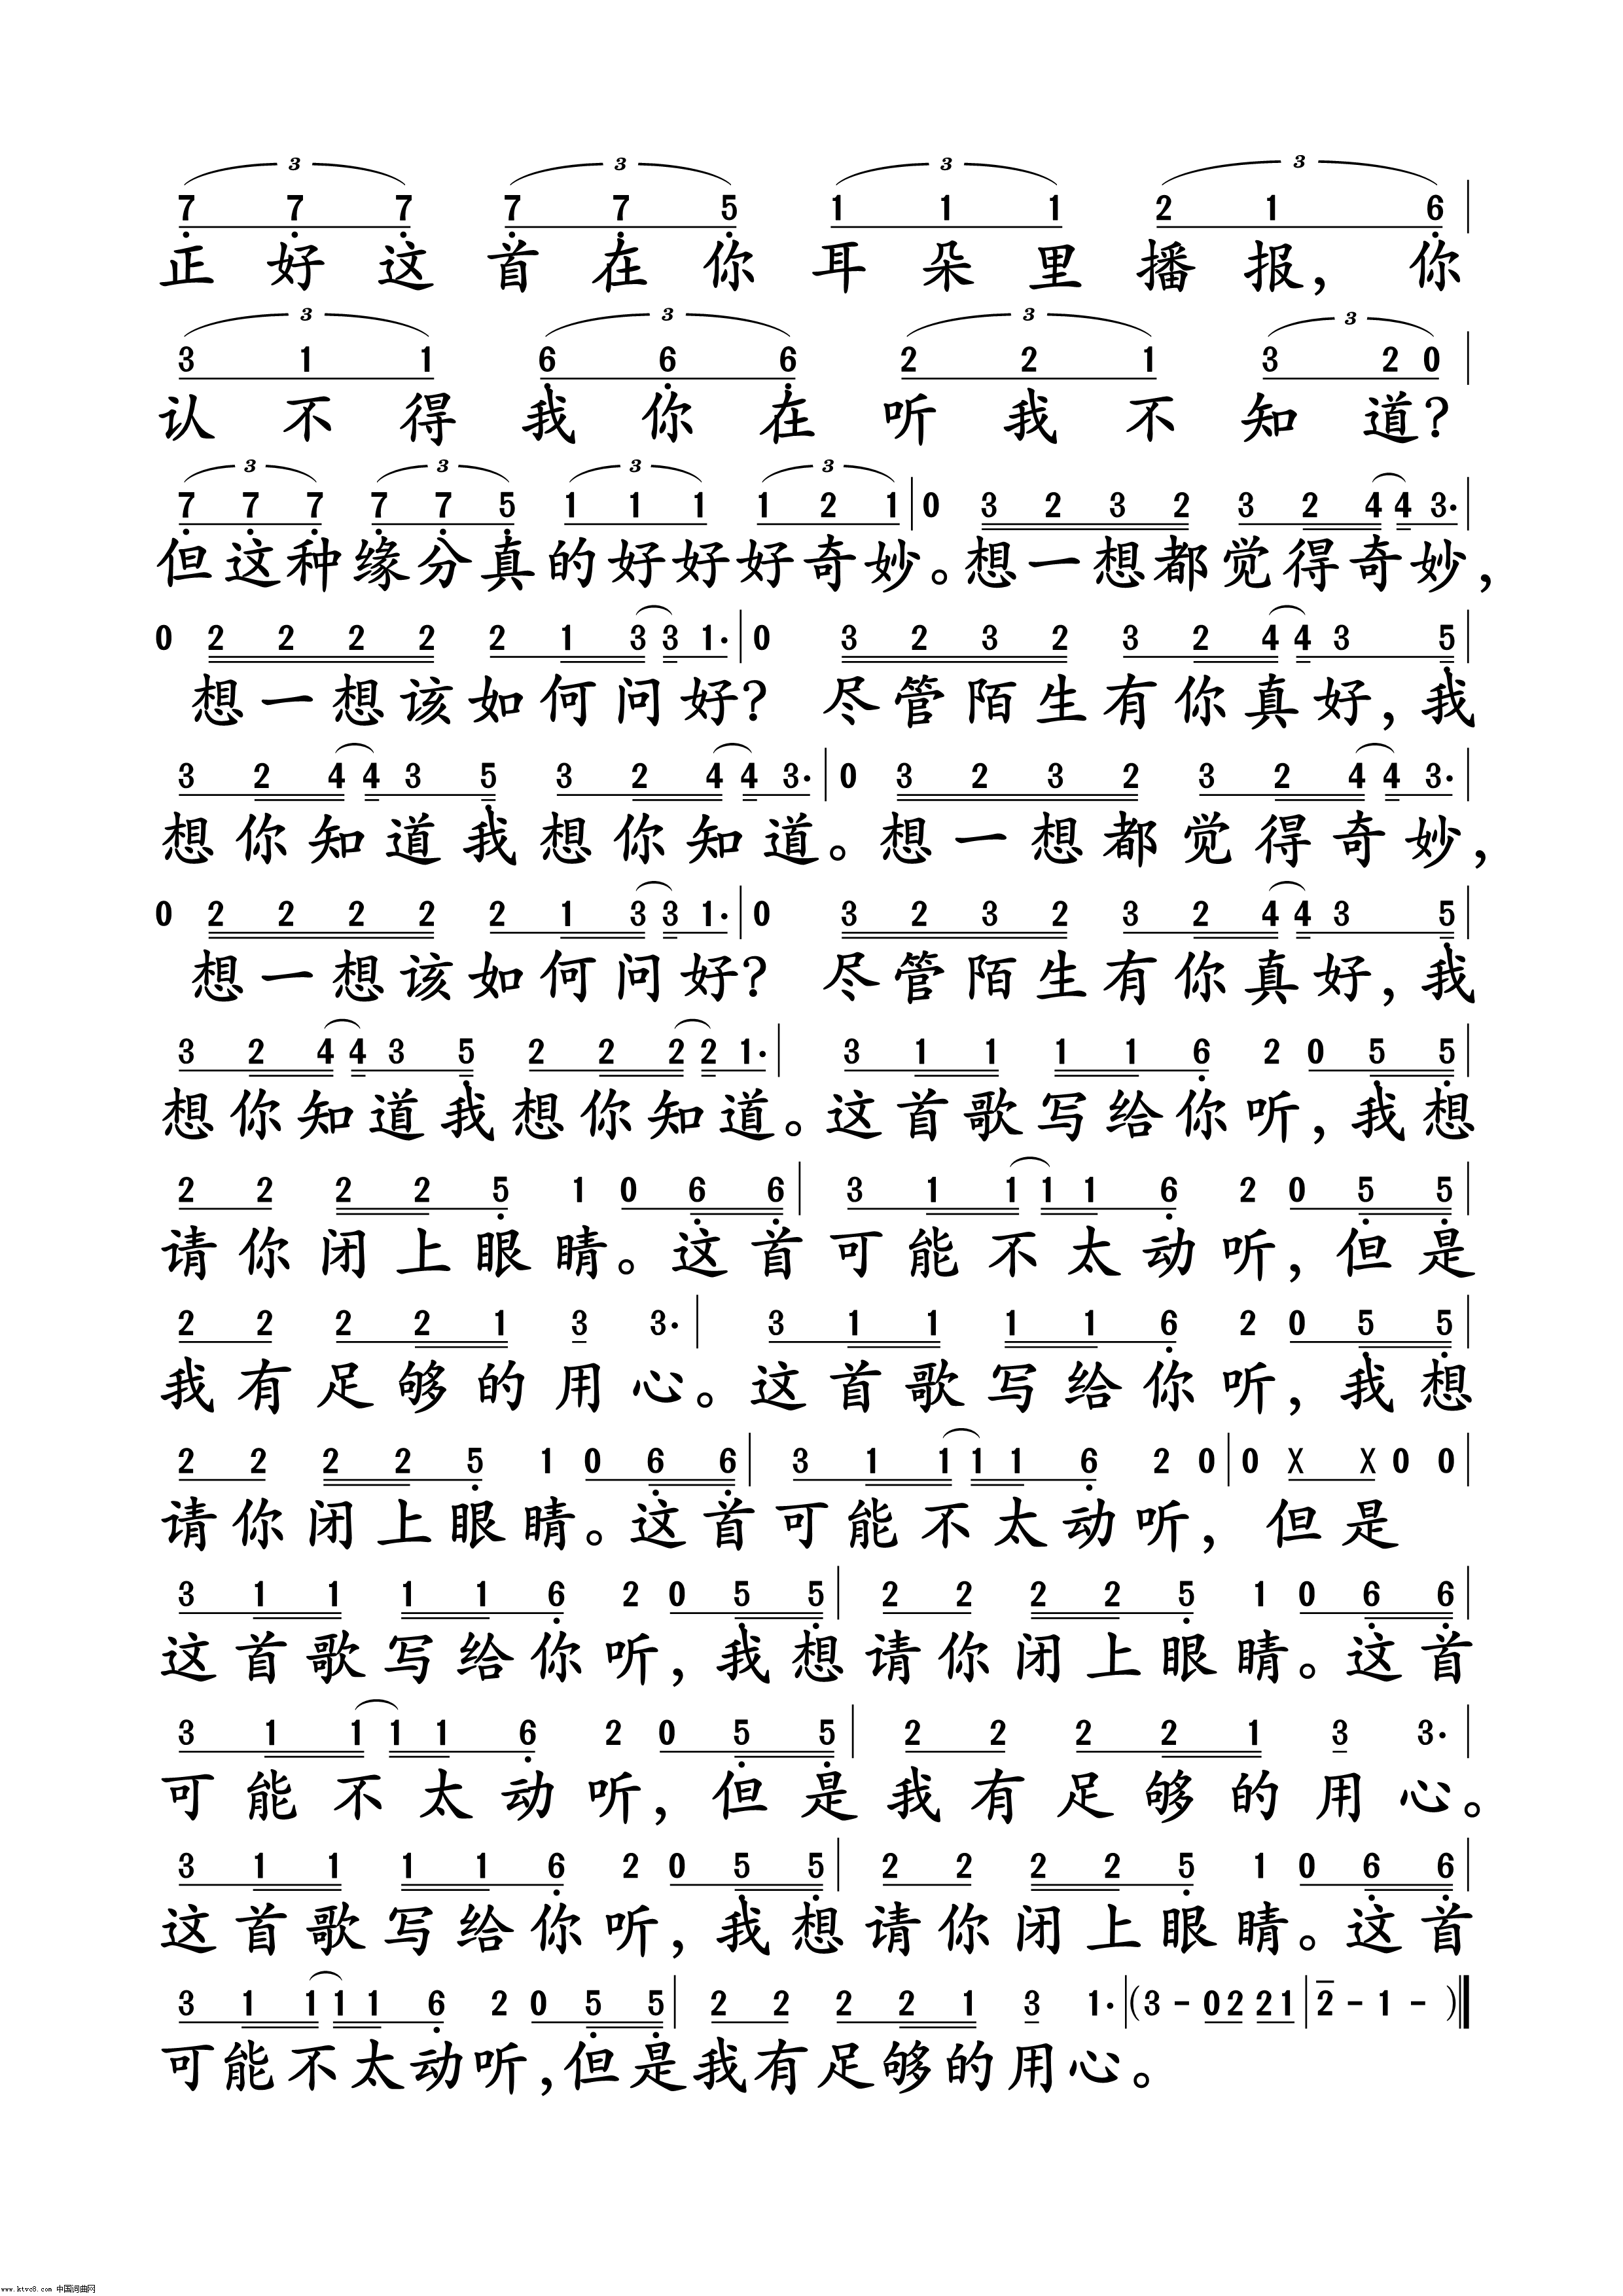 3 3 3 3
7 7 7 7 7 5 1 1 1 2 1 6
正好这首在你耳朵里播报，你
3 3 3 3
3 1 1 6 6 6 2 2 1 3 2 0
认不得我你在听我不知道？
3 3 3 3
7 7 7 7 7 5 1 1 1 1 2 1 | 0 3 2 3 2 3 2 4 4 3· |
但这种缘分真的好好好奇妙。想一想都觉得奇妙，
0 2 2 2 2 2 1 3 3 1· | 0 3 2 3 2 3 2 4 4 3 5 |
想一想该如何问好？ 尽管陌生有你真好，我
3 2 4 4 3 5 3 2 4 4 3· | 0 3 2 3 2 3 2 4 4 3· |
想你知道我想你知道。想一想都觉得奇妙，
0 2 2 2 2 2 1 3 3 1· | 0 3 2 3 2 3 2 4 4 3 5 |
想一想该如何问好？ 尽管陌生有你真好，我
3 2 4 4 3 5 2 2 2 2 1· | 3 1 1 1 1 6 2 0 5 5 |
想你知道我想你知道。这首歌写给你听，我想
2 2 2 2 5 1 0 6 6 | 3 1 1 1 1 6 2 0 5 5 |
请你闭上眼睛。这首可能不太动听，但是
2 2 2 2 1 3 3· | 3 1 1 1 1 6 2 0 5 5 |
我有足够的用心。这首歌写给你听，我想
2 2 2 2 5 1 0 6 6 | 3 1 1 1 1 6 2 0 | 0 X X 0 0 |
请你闭上眼睛。这首可能不太动听，但是
3 1 1 1 1 6 2 0 5 5 | 2 2 2 2 5 1 0 6 6 |
这首歌写给你听，我想请你闭上眼睛。这首
3 1 1 1 1 6 2 0 5 5 | 2 2 2 2 1 3 3· |
可能不太动听，但是我有足够的用心。
3 1 1 1 1 6 2 0 5 5 | 2 2 2 2 5 1 0 6 6 |
这首歌写给你听，我想请你闭上眼睛。这首
3 1 1 1 1 6 2 0 5 5 | 2 2 2 2 1 3 1· | (3 - 0 2 2 1 | 2 - 1 - )
可能不太动听，但是我有足够的用心。
www.ktvc8.com 中国词曲网